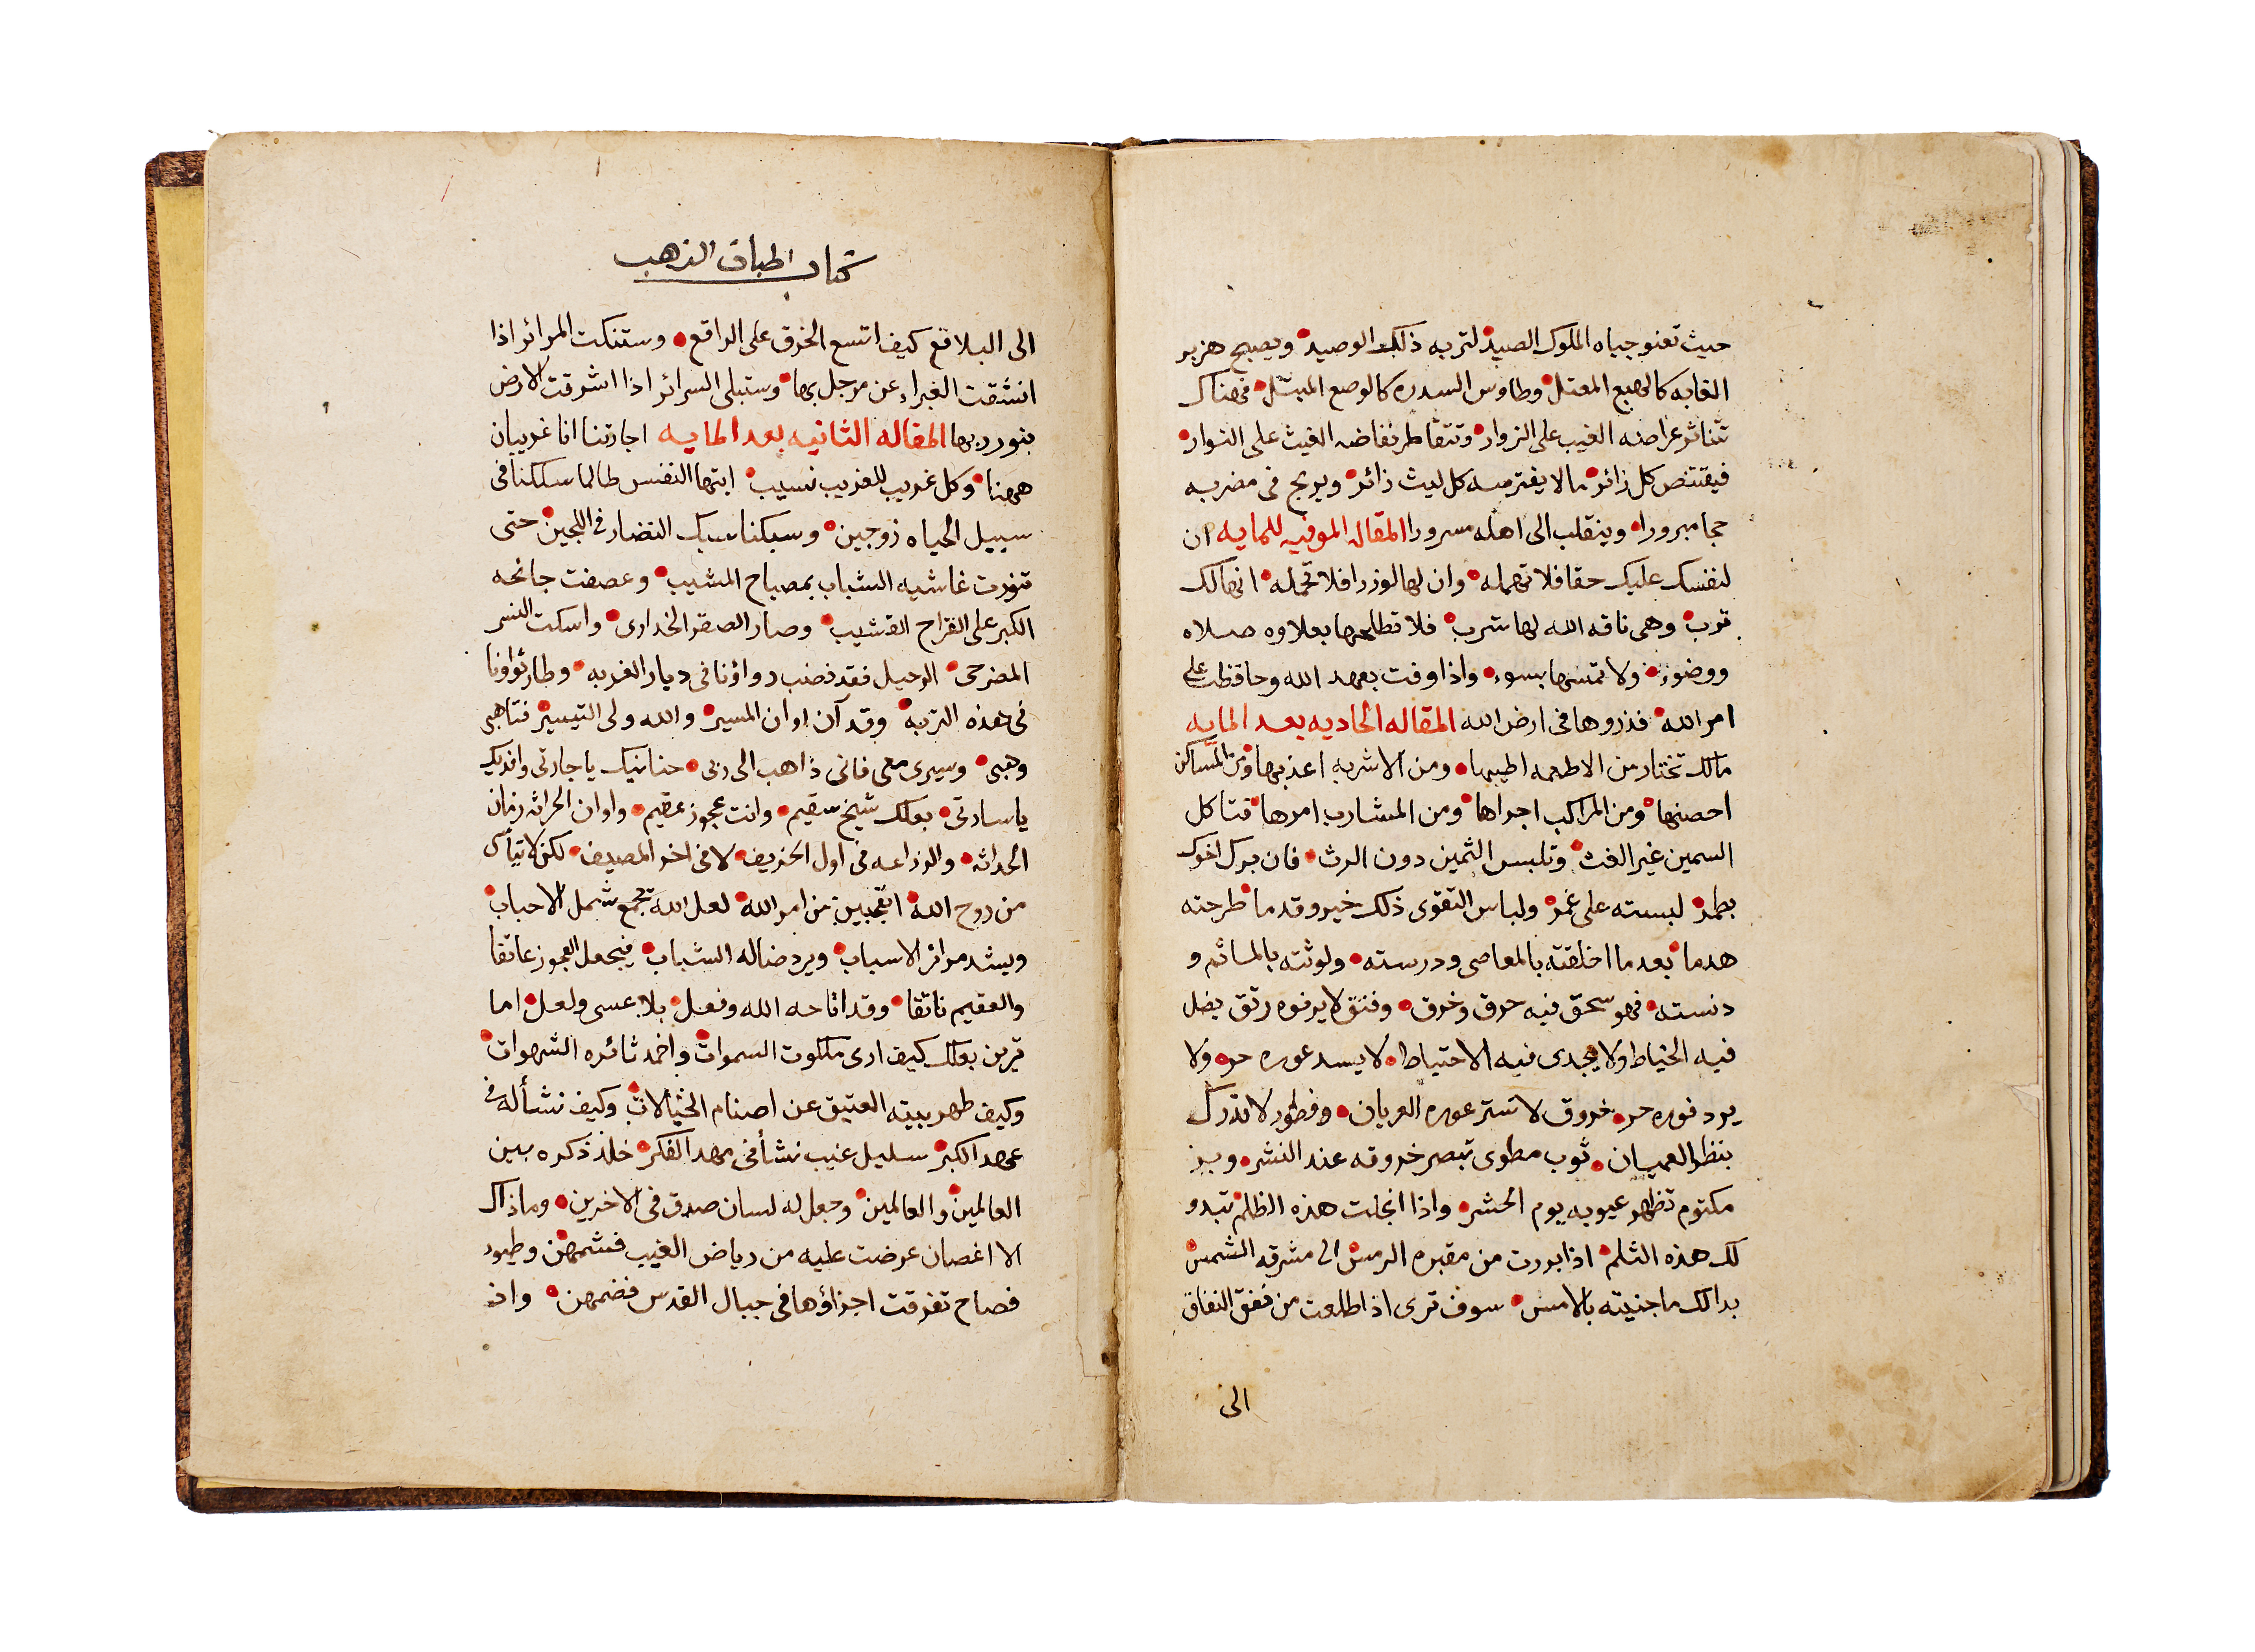 حيث تعنو جباه الملوك الصيد لتربه ذلك الوصيد ويصبح هزبر
الغابه كالهبع المعتل وطاوس السدره كالوصع المبتل فهناك
تتناثر عراضه الغيب على الزوار وتتقاطر نفاضه الغيث على النوار
فيقتنص كل زائر مالا يفترسه كل ليث زائر ويربح فى مضربه
حجا مبرورا وينقلب الى اهله مسرورا المقاله الموفيه للمايه ان
لنفسك عليك حقا فلا تهمله وان لها لوزرا فلا تحمله انها لك
ترب وهى ناقه الله لها شرب فلا تظلمها بعلاوه صلاه
ووضوء ولا تمسها بسوء واذا وفت بعهد الله وحافظت على
امر الله فذروها فى ارض الله المقاله الحاديه بعد المايه
مالك تختار من الاطعمه اطيبها ومن الاشربه اعذبها ومن المساكن
احصنها ومن المراكب اجراها ومن المشارب امرها فتاكل
السمين غير الغث وتلبس الثمين دون الرث فان برك اخوك
بطمر لبسته على غمر ولباس التقوى ذلك خير وقد ما طرحته
هدما بعد ما اخلقته بالمعاصى ودرسته ولوثته بالماثم و
دنسته فهو سحق فيه حرق وخرق وفتق لا يرفوه رتق يضل
فيه الخياط ولا يجدى فيه الاحتياط لا يسد عوره حر ولا
يرد فوره حر خروق لا تستر عوره العريان وفطور لا تدرك
بنظر العميان ثوب مطوى تبصر خروقه عند النشر وبز
مكتوم تظهر عيوبه يوم الحشر واذا انجلت هذه الظلم تبدو
لك هذه الثلم اذا بررت من مقبره الرمس الى مشرقه الشمس
بدالك ما جنيته بالامس سوف ترى اذا طلعت من نفق النفاق
الى
كتاب اطباق الذهب
الى البلاقع كيف اتسع الخرق على الراقع وستنكت المرائر اذا
انشقت الغبراء عن مرجل بها وستبلى السرائر اذا اشرقت الارض
بنور ربها المقاله الثانيه بعد المايه اجارتنا انا غريبان
ههنا وكل غريب للغريب نسيب ايتها النفس طالما سلكنا فى
سبيل الحياه زوجين وسبكنا سبك النضار فى اللجين حتى
تنورت غاشيه الشباب بمصباح المشيب وعصفت جائحه
الكبر على القراح القشيب وصار الصقر الخدارى واسكت النسر
المضرحى الرحيل فقد نضب دواؤنا فى ديار الغربه وطار ثواونا
فى هذه التربه وقد آن اوان المسير والله ولى التيسير فتاهبى
وهبى وسيرى معى فانى ذاهب الى ربى حنانيك يا جارتى وافديك
يا سادتى بعلك شيخ سقيم وانت عجوز عقيم واوان الحراثه زمان
الحداثه والزراعه فى اول الخريف لا فى اخر المصيف لكن لا تيأسى
من روح الله اتعجبين من امر الله لعل الله يجمع شمل الاحباب
ويشد مرائر الاسباب ويرد ضاله الشباب فيجعل العجوز عاتقا
والعقيم ناتقا وقد اتاحه الله وفعل بلا عسى ولعل اما
ترين بعلك كيف ارى ملكوت السموات واخمد ثائره الشهوات
وكيف طهر بيته العتيق عن اصنام الخيالات وكيف نشأ له فى
عهد الكبر سليل غيب نشأ فى مهد الفكر خلد ذكره بين
العالمين والعالمين وجعل له لسان صدق فى الاخرين وما ذاك
الا اغصان عرضت عليه من رياض الغيب فشمهن وطيور
فصاح تفرقت اجزاؤها فى جبال القدس فضمهن واذ